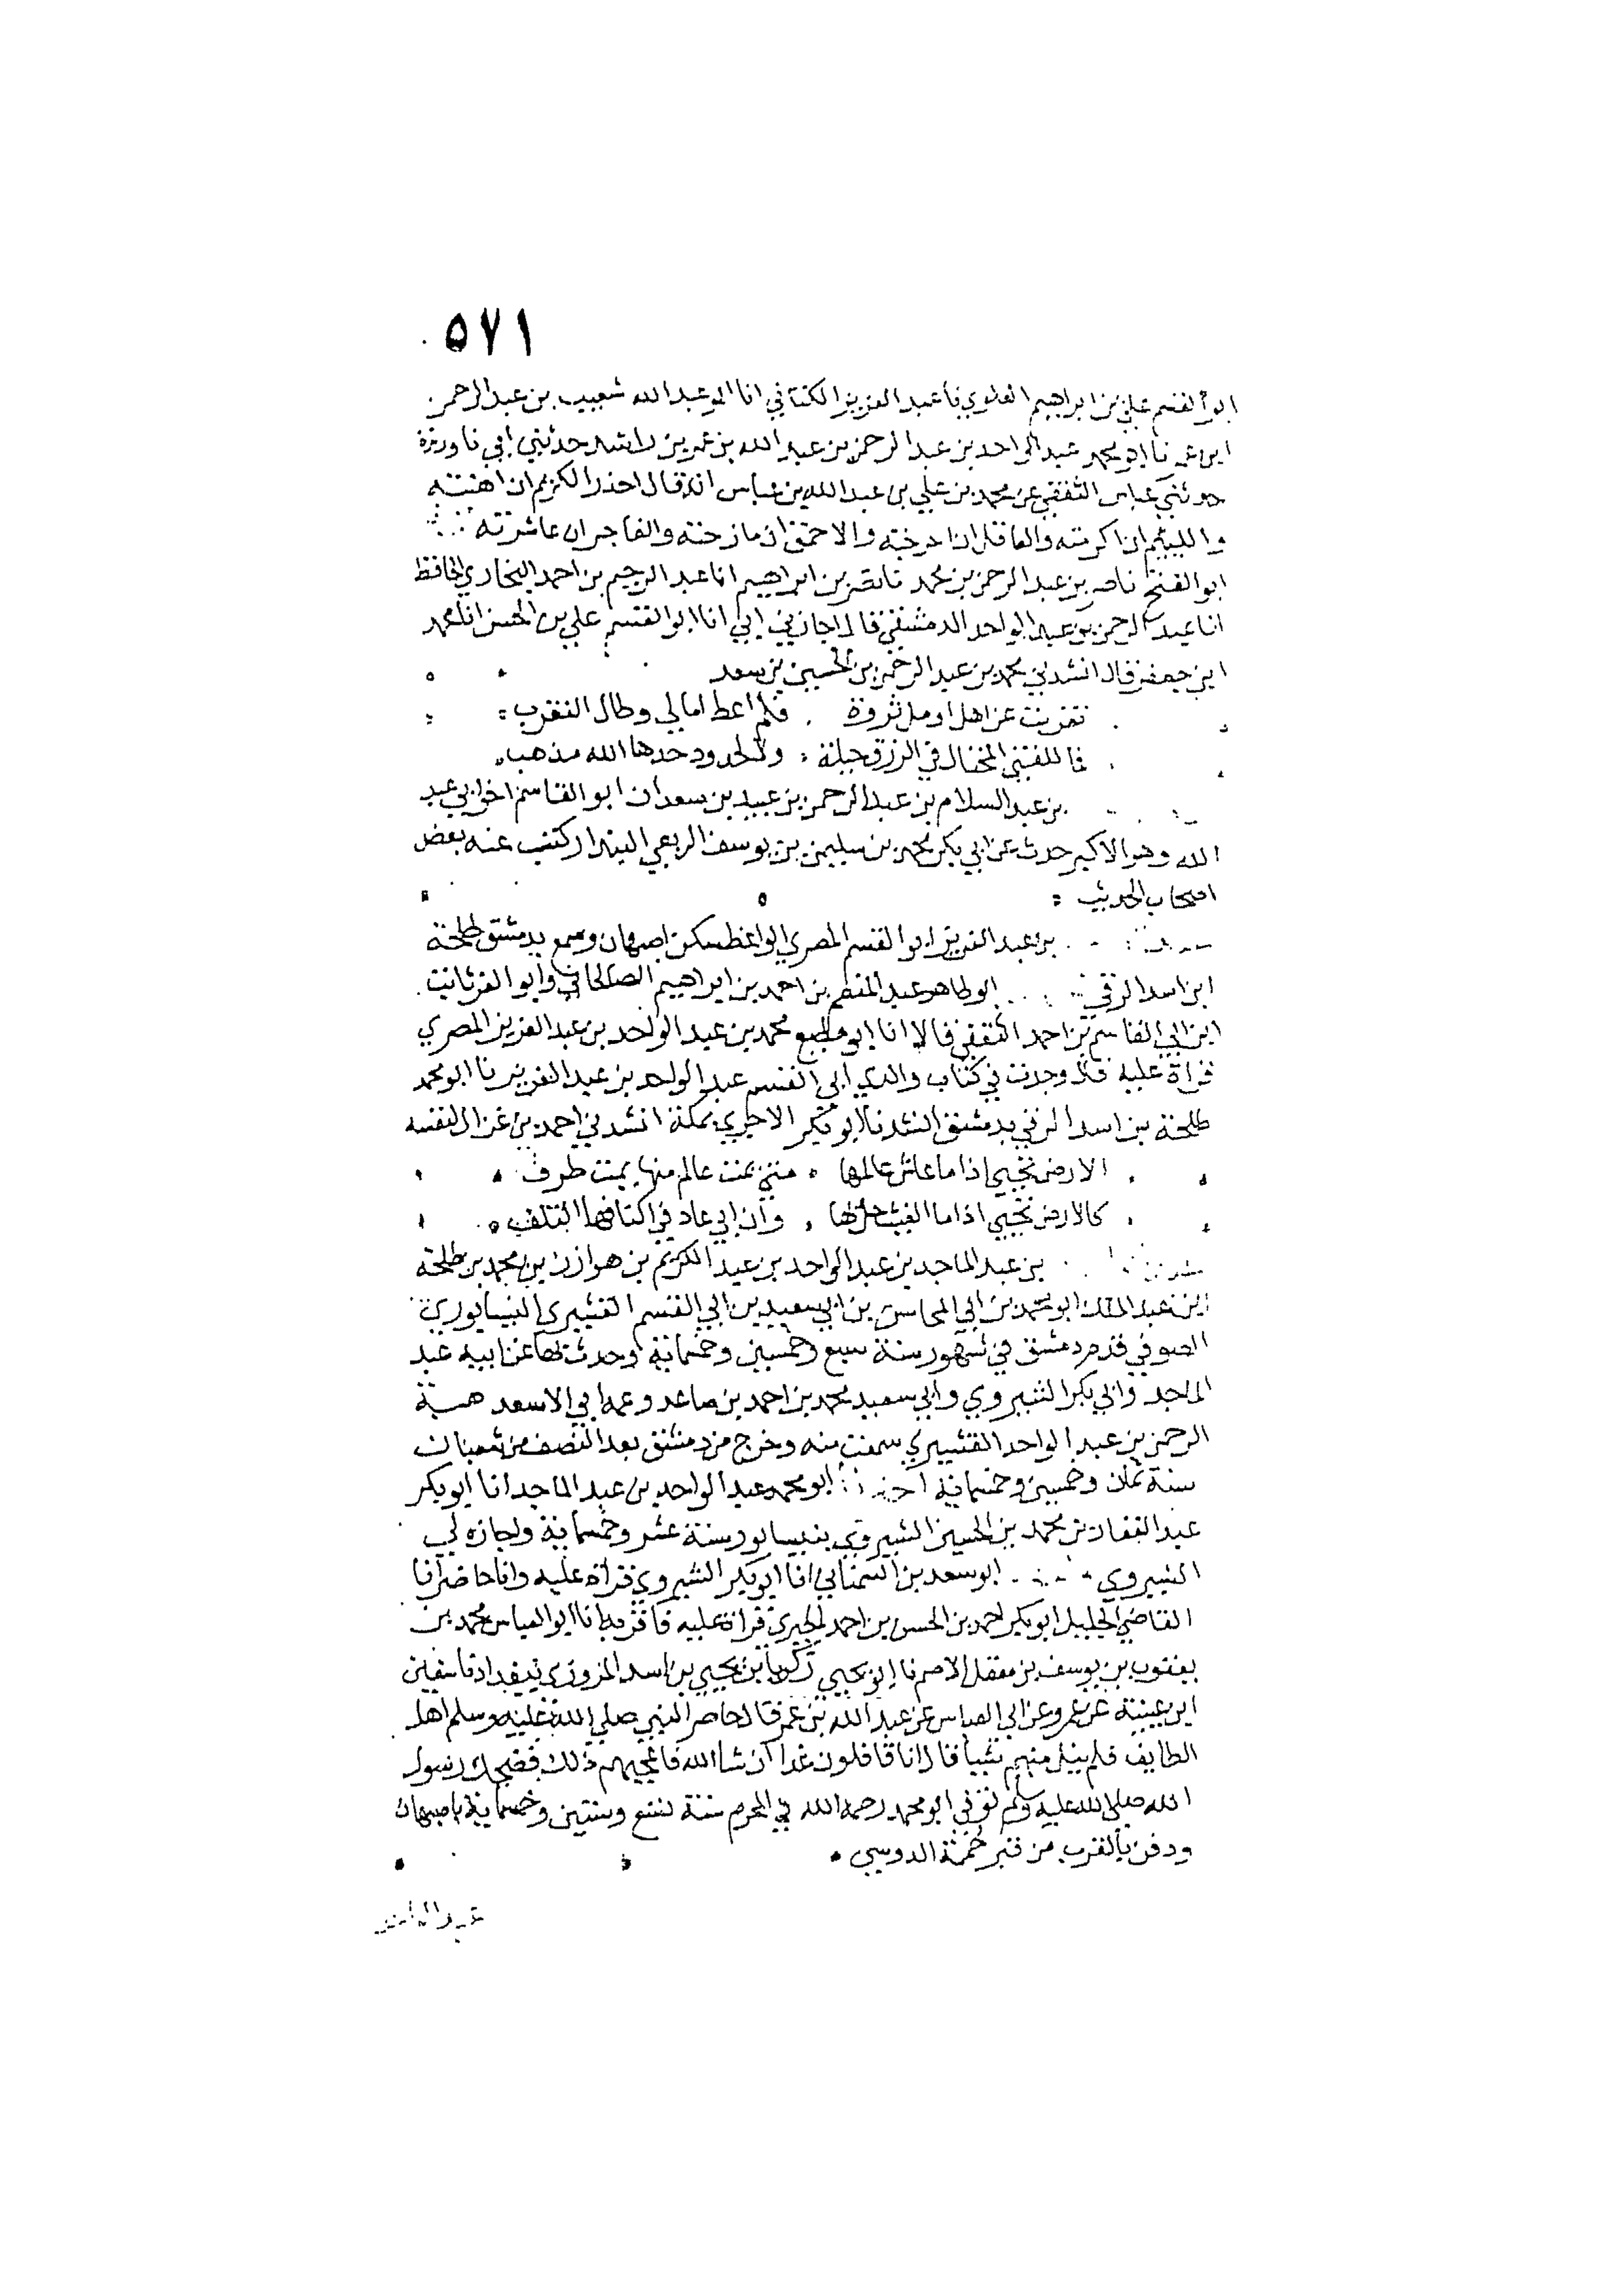 ٥٧١
ابو القسم علي بن ابراهيم العلوي نا عبد العزيز الكتاني انا ابو عبد الله شعيب بن عبد الرحمن
ابن عمر نا ابو محمد عبد الواحد بن عبد الرحمن بن عبد الله بن عمر بن راشد حدثني ابي نا وريزة
حدثني عباس الثقفي عن محمد بن علي بن عبد الله بن عباس انه قال احذر الكريم ان اهنته
والليئم ان اكرمته والعاقل ان احرجته والاحمق ان مازحته والفاجر ان عاشرته
ابو الفتح ناصر بن عبد الرحمن بن محمد نا نصر بن ابراهيم انا عبد الرحيم بن احمد البخاري الحافظ
انا عبد الرحمن بن عبد الواحد الدمشقي قال اجازني ابي انا ابو القسم علي بن الحسن انا محمد
ابن جعفر قال انشدني محمد بن عبد الرحمن بن الحسين بن سعد
تغربت عن اهلي اومل ثروة فلم اعط امالي وطال التغرب
فما للفتى المحتال في الرزق حيلة ولا لحدود حدها الله مذهب
بن عبد السلام بن عبد الرحمن بن عبيد بن سعدان ابو القاسم اخو ابي عبد
الله وهو الاكبر حدث عن ابي بكر محمد بن سليمن بن يوسف الربعي البندار كتب عنه بعض
اصحاب الحديث
بن عبد العزيز ابو القسم المصري الواعظ سكن اصبهان وسمع بدمشق طلحة
ابن اسد الرقي ابو طاهر عبد المنعم بن احمد بن ابراهيم الصالحاني وابو الفر ثابت
ابن ابي القاسم بن احمد الثقفي قالا انا ابو مطيع محمد بن عبد الواحد بن عبد العزيز المصري
قراة عليه قال وجدت في كتاب والدي ابي القسم عبد الواحد بن عبد العزيز نا ابو محمد
طلحة بن اسد الرقي بدمشق انشدنا ابو بكر الاجري بمكة انشدني احمد بن غزال لنفسه
الارض تحيى اذا ما عاش عالمها متى يمت عالم منها يمت طرف
كالارض تحيى اذا ما الغيث حل بها وان ابى عاد في اكنافها التلف
بن عبد الماجد بن عبد الواحد بن عبد الكريم بن هوازن بن محمد بن طلحة
ابن عبد الملك ابو محمد بن ابي المحاسن بن ابي سعيد بن ابي القسم القشيري النيسابوري
الصوفي قدم دمشق في شهور سنة سبع وخمسين وخمسماية وحدث بها عن ابيه عبد
الماجد وابي بكر الشيروي وابي سعيد محمد بن احمد بن صاعد وعمه ابي الاسعد هبة
الرحمن بن عبد الواحد القشيري سمعت منه وخرج من دمشق بعد النصف من شعبان
سنة ثمان وخمسين وخمسماية ابو محمد عبد الواحد بن عبد الماجد انا ابو بكر
عبد الغفار بن محمد بن الحسين الشيروي بنيسابور سنة عشر وخمسماية واجازه لي
الشيروي ابو سعد بن السمعاني انا ابو بكر الشيروي قراة عليه وانا حاضر انا
القاضي الجليل ابو بكر احمد بن الحسن بن احمد الحيري قراة عليه فاقر به انا ابو العباس محمد بن
يعقوب بن يوسف بن معقل الاصم نا ابو يحيى زكريا بن يحيى بن اسد المروزي ببغداد نا سفين
ابن عيينة عن عمرو عن ابي العباس عن عبد الله بن عمر قال حاصر النبي صلى الله عليه وسلم اهل
الطايف فلم ينل منهم شيا فقال انا قافلون غدا ان شا الله فاعجبهم ذلك فضحك رسول
الله صلى الله عليه وسلم توفي ابو محمد رحمه الله في المحرم سنة تسع وستين وخمسماية باصبهان
ودفن بالقرب من قبر حممة الدوسي